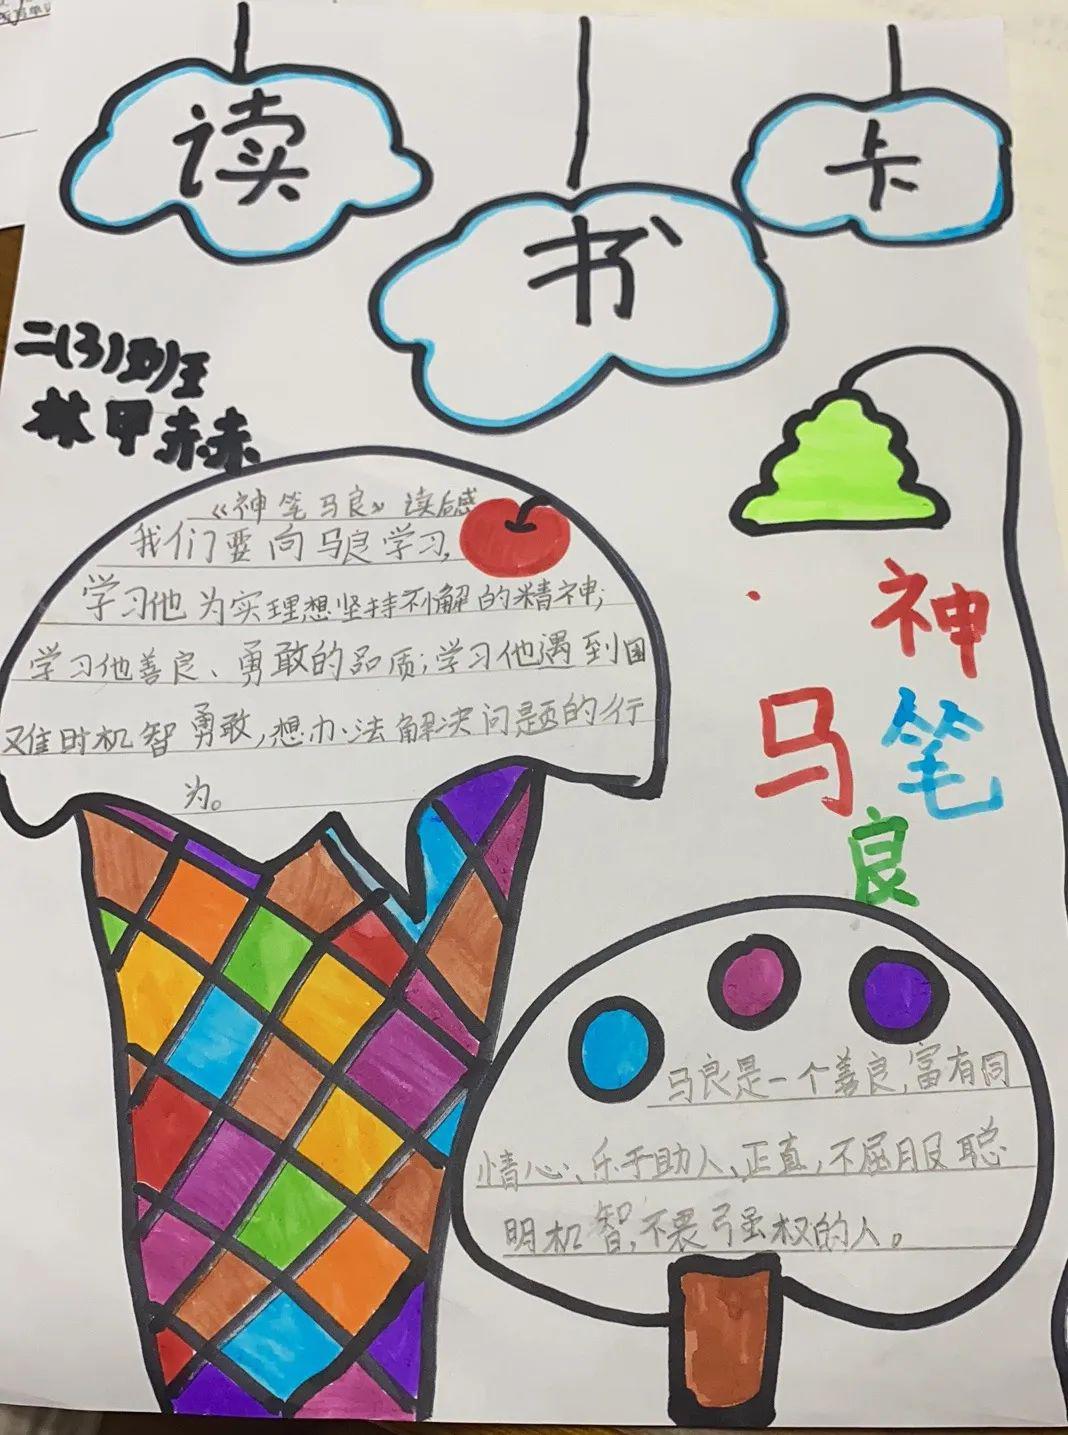 读
书
卡
二(3)班
林甲赤赤
《神笔马良》读后感
我们要向马良学习,
学习他为实理想坚持不懈的精神;
学习他善良、勇敢的品质;学习他遇到困
难时机智勇敢,想办法解决问题的行
为。
神
马笔
良
马良是一个善良,富有同
情心、乐于助人、正直,不屈服聪
明机智,不畏强权的人。